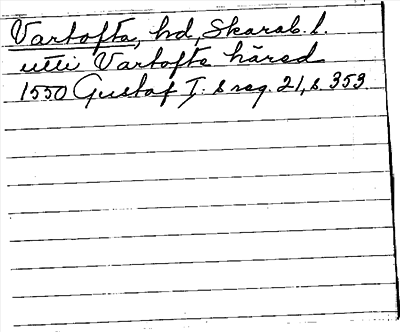 Vartofta, hd, Skarab. l.
utti Vartofte härad
1550 Gustaf I:s reg. 21, s. 353.